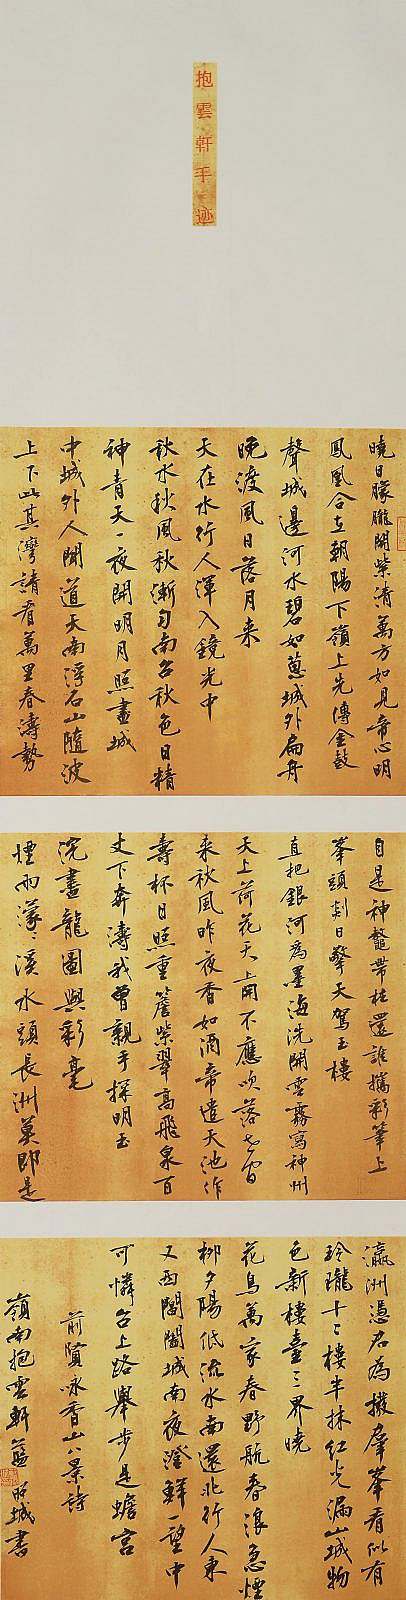 抱雲軒手迹
曉日朦朧開紫清萬方如見帝心明
鳳凰合立朝陽下嶺上先傳金鼓
聲城邊河水碧如蔥城外扁舟
晚渡風日落月来
天在水行人渾入鏡光中
秋水秋風秋漸匀南台秋色日精
神青天一夜開明月照畫城
中城外人聞道天南浮石山隨波
上下此其灣請看萬里春濤勢
自是神鼇帶柱還誰攜彩筆上
峯頭刻日擎天駕玉樓
直把銀河為墨海洗開雲霧寫神州
天上荷花天上開不應吹落七
来秋風昨夜香如酒帝遣天池作
壽杯日照重簷紫翠高飛泉百
丈下奔濤我曾親手探明玉
浣畫龍圖與彩毫
煙雨濛〻溪水頭長洲莫即是
瀛洲憑君為撥羣峯看似有
玲瓏十二樓半抹紅光漏山城物
色新樓臺三界曉
花鳥萬家春野航春浪急煙
柳夕陽低流水南還北行人東
又西閶闔城南夜澄鮮一望中
可憐台上路舉步是蟾宮
前賢咏香山八景詩
嶺南抱雲軒藍城書